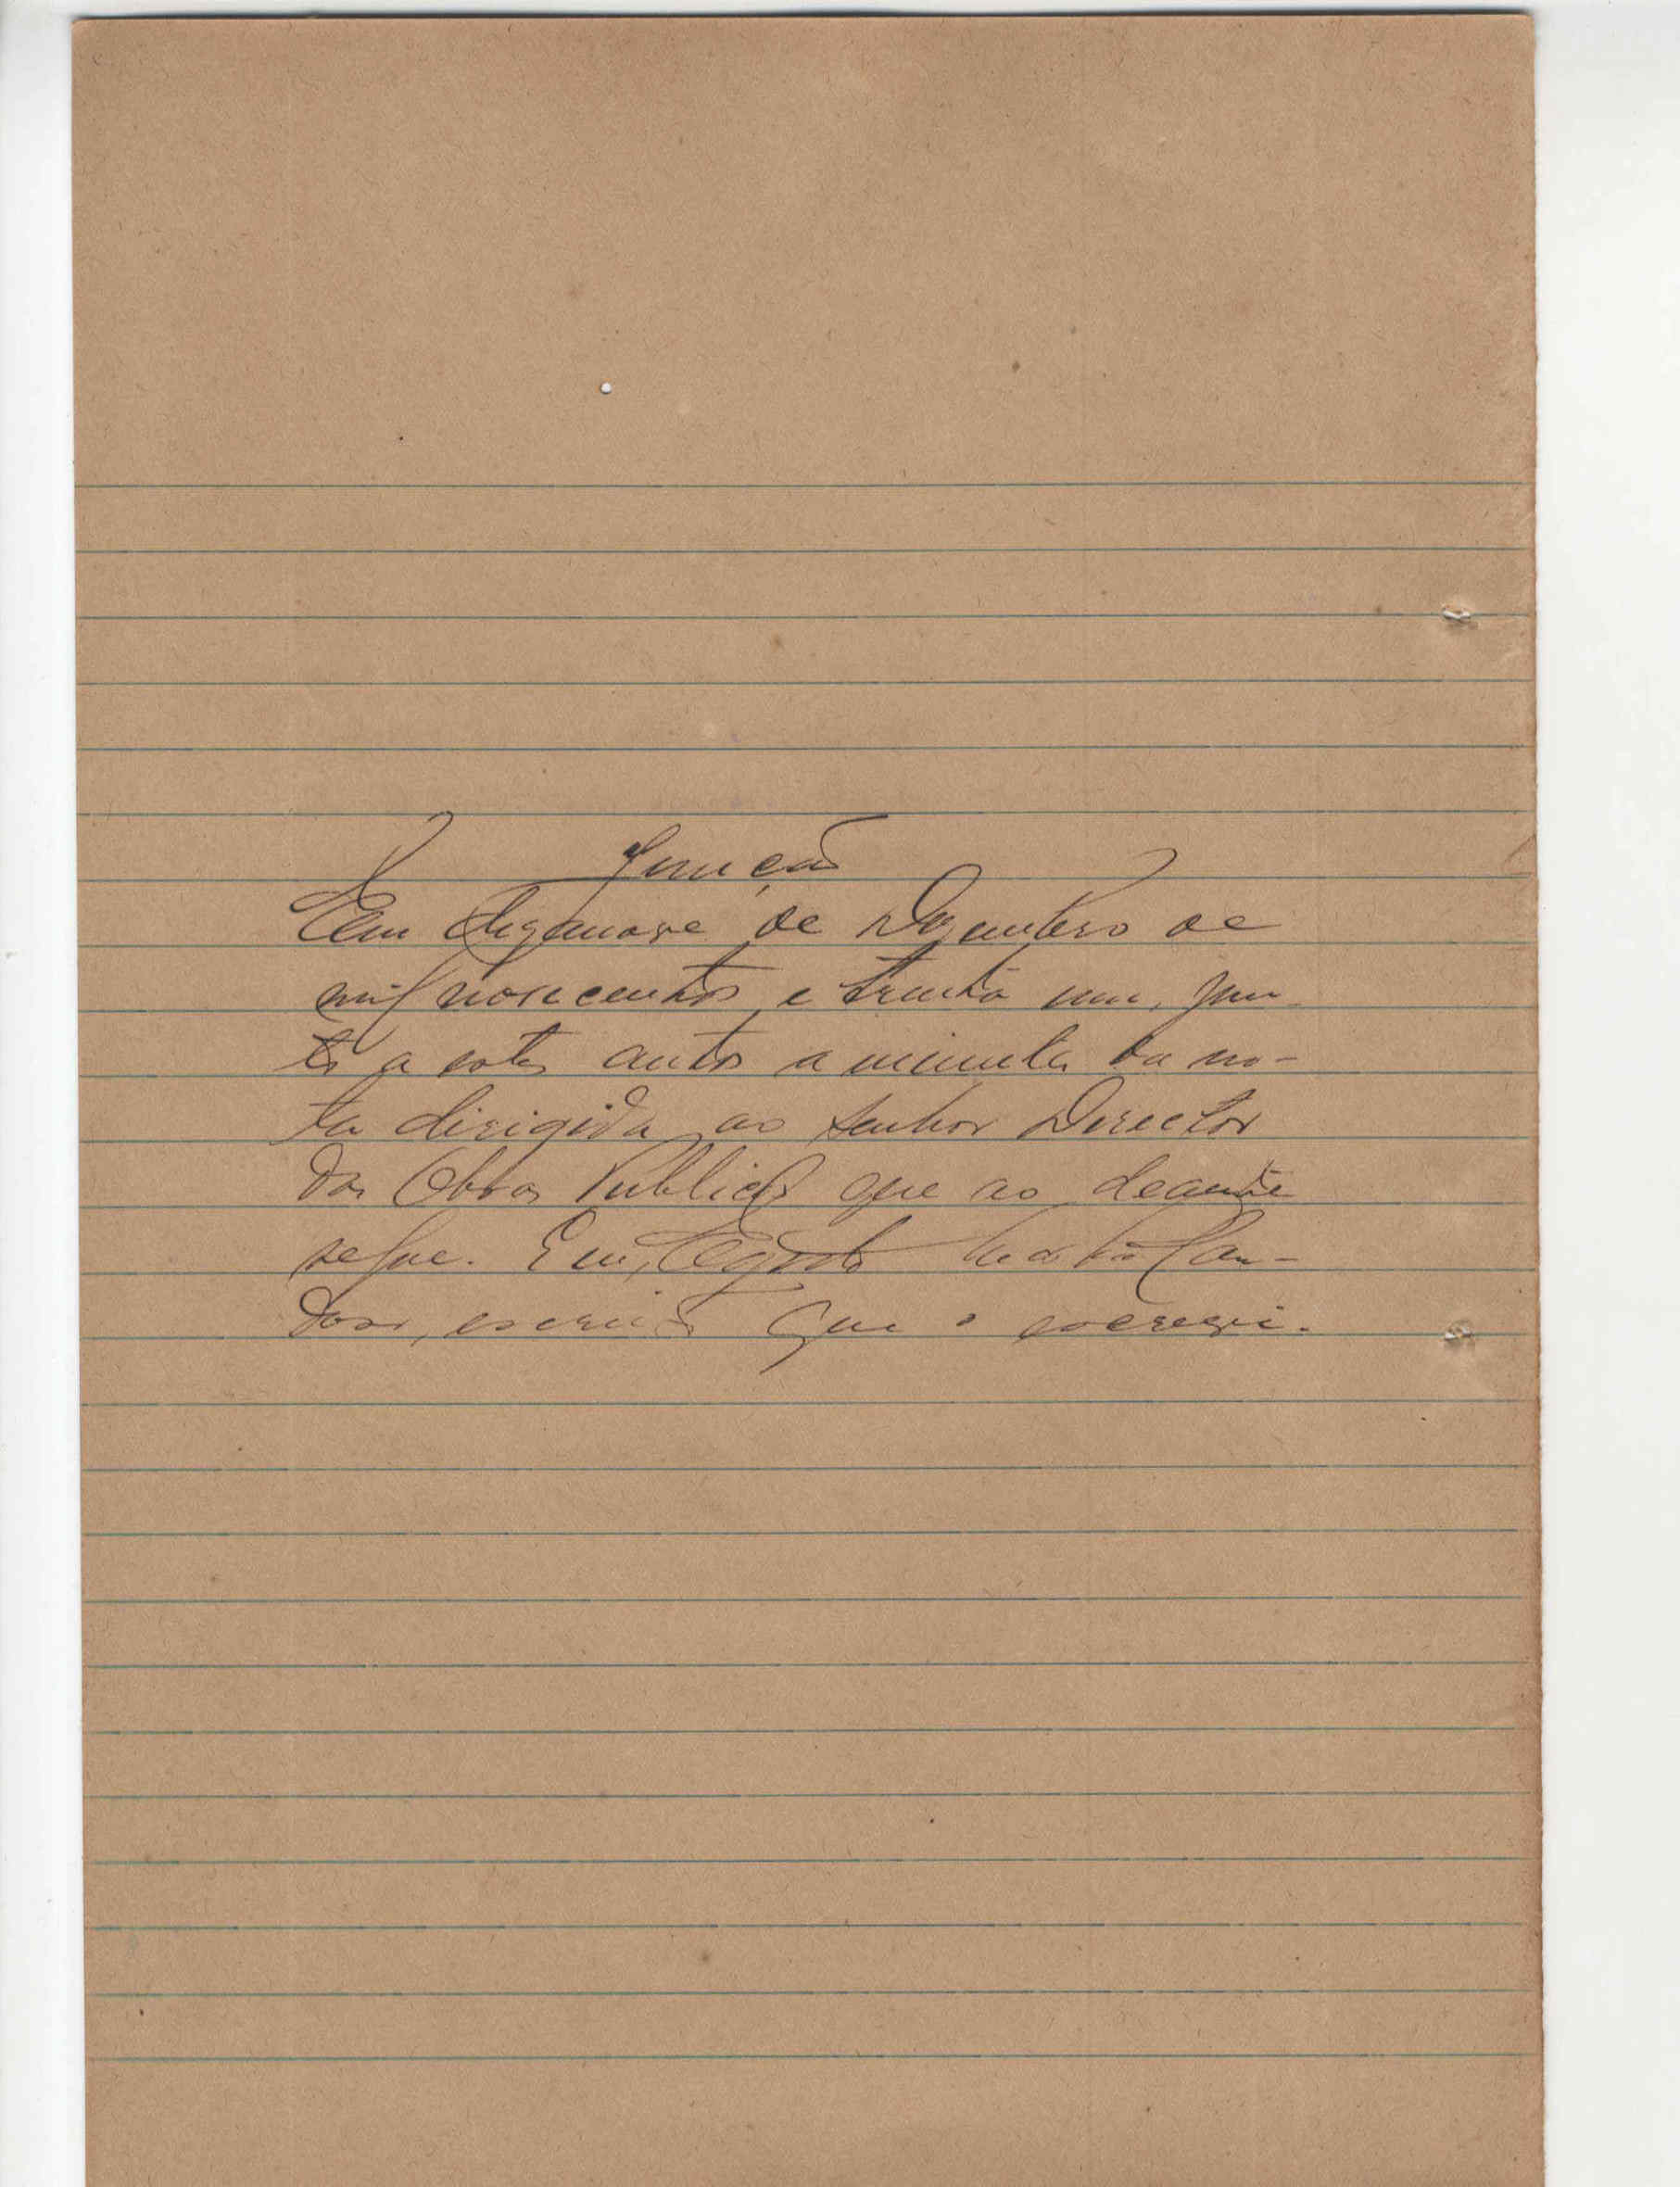 Junção
Em dezanove de Dezembro de
mil novecentos e trinta um, jun-
to a estes autos a minuta da no-
ta dirigida ao Senhor Director
das Obras Publicas que ao deante
segue. Eu, Car-
doso, escrivão que o escrevi.